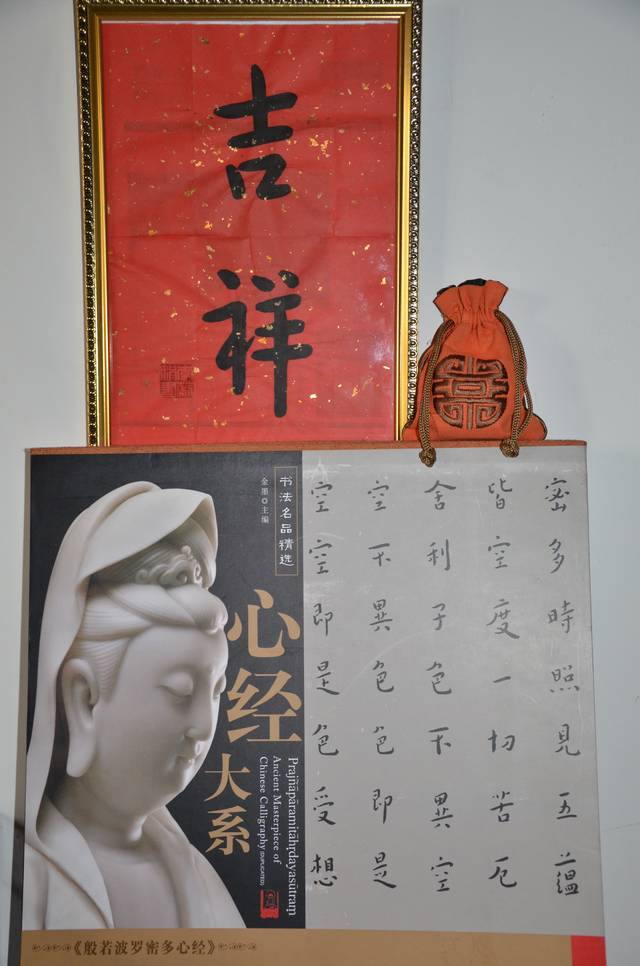 吉祥
书法名品精选
金墨 主编
心经
大系
Prajñāpāramitāhṛdayasūtraṃ
Ancient Masterpiece of
Chinese Calligraphy (DUPLICATED)
密多時照見五蘊
皆空度一切苦厄
舍利子色不異空
空不異色色即是
空空即是色受想
《般若波罗密多心经》